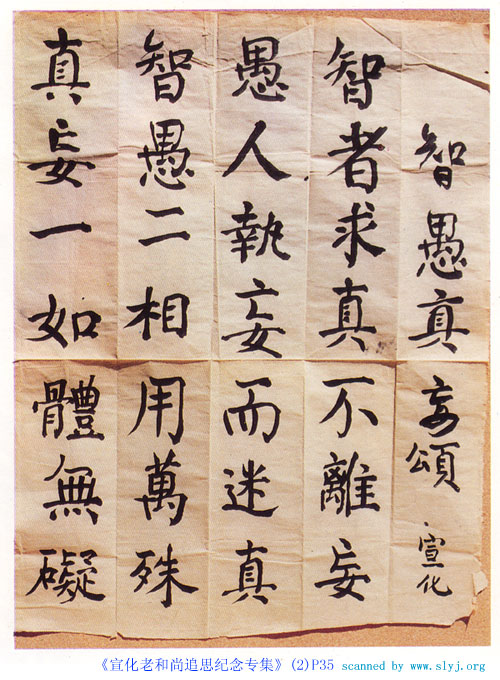 智愚真妄頌 宣化
智者求真不離妄
愚人執妄而迷真
智愚二相用萬殊
真妄一如體無礙
《宣化老和尚追思纪念专集》(2)P35 scanned by www.slyj.org